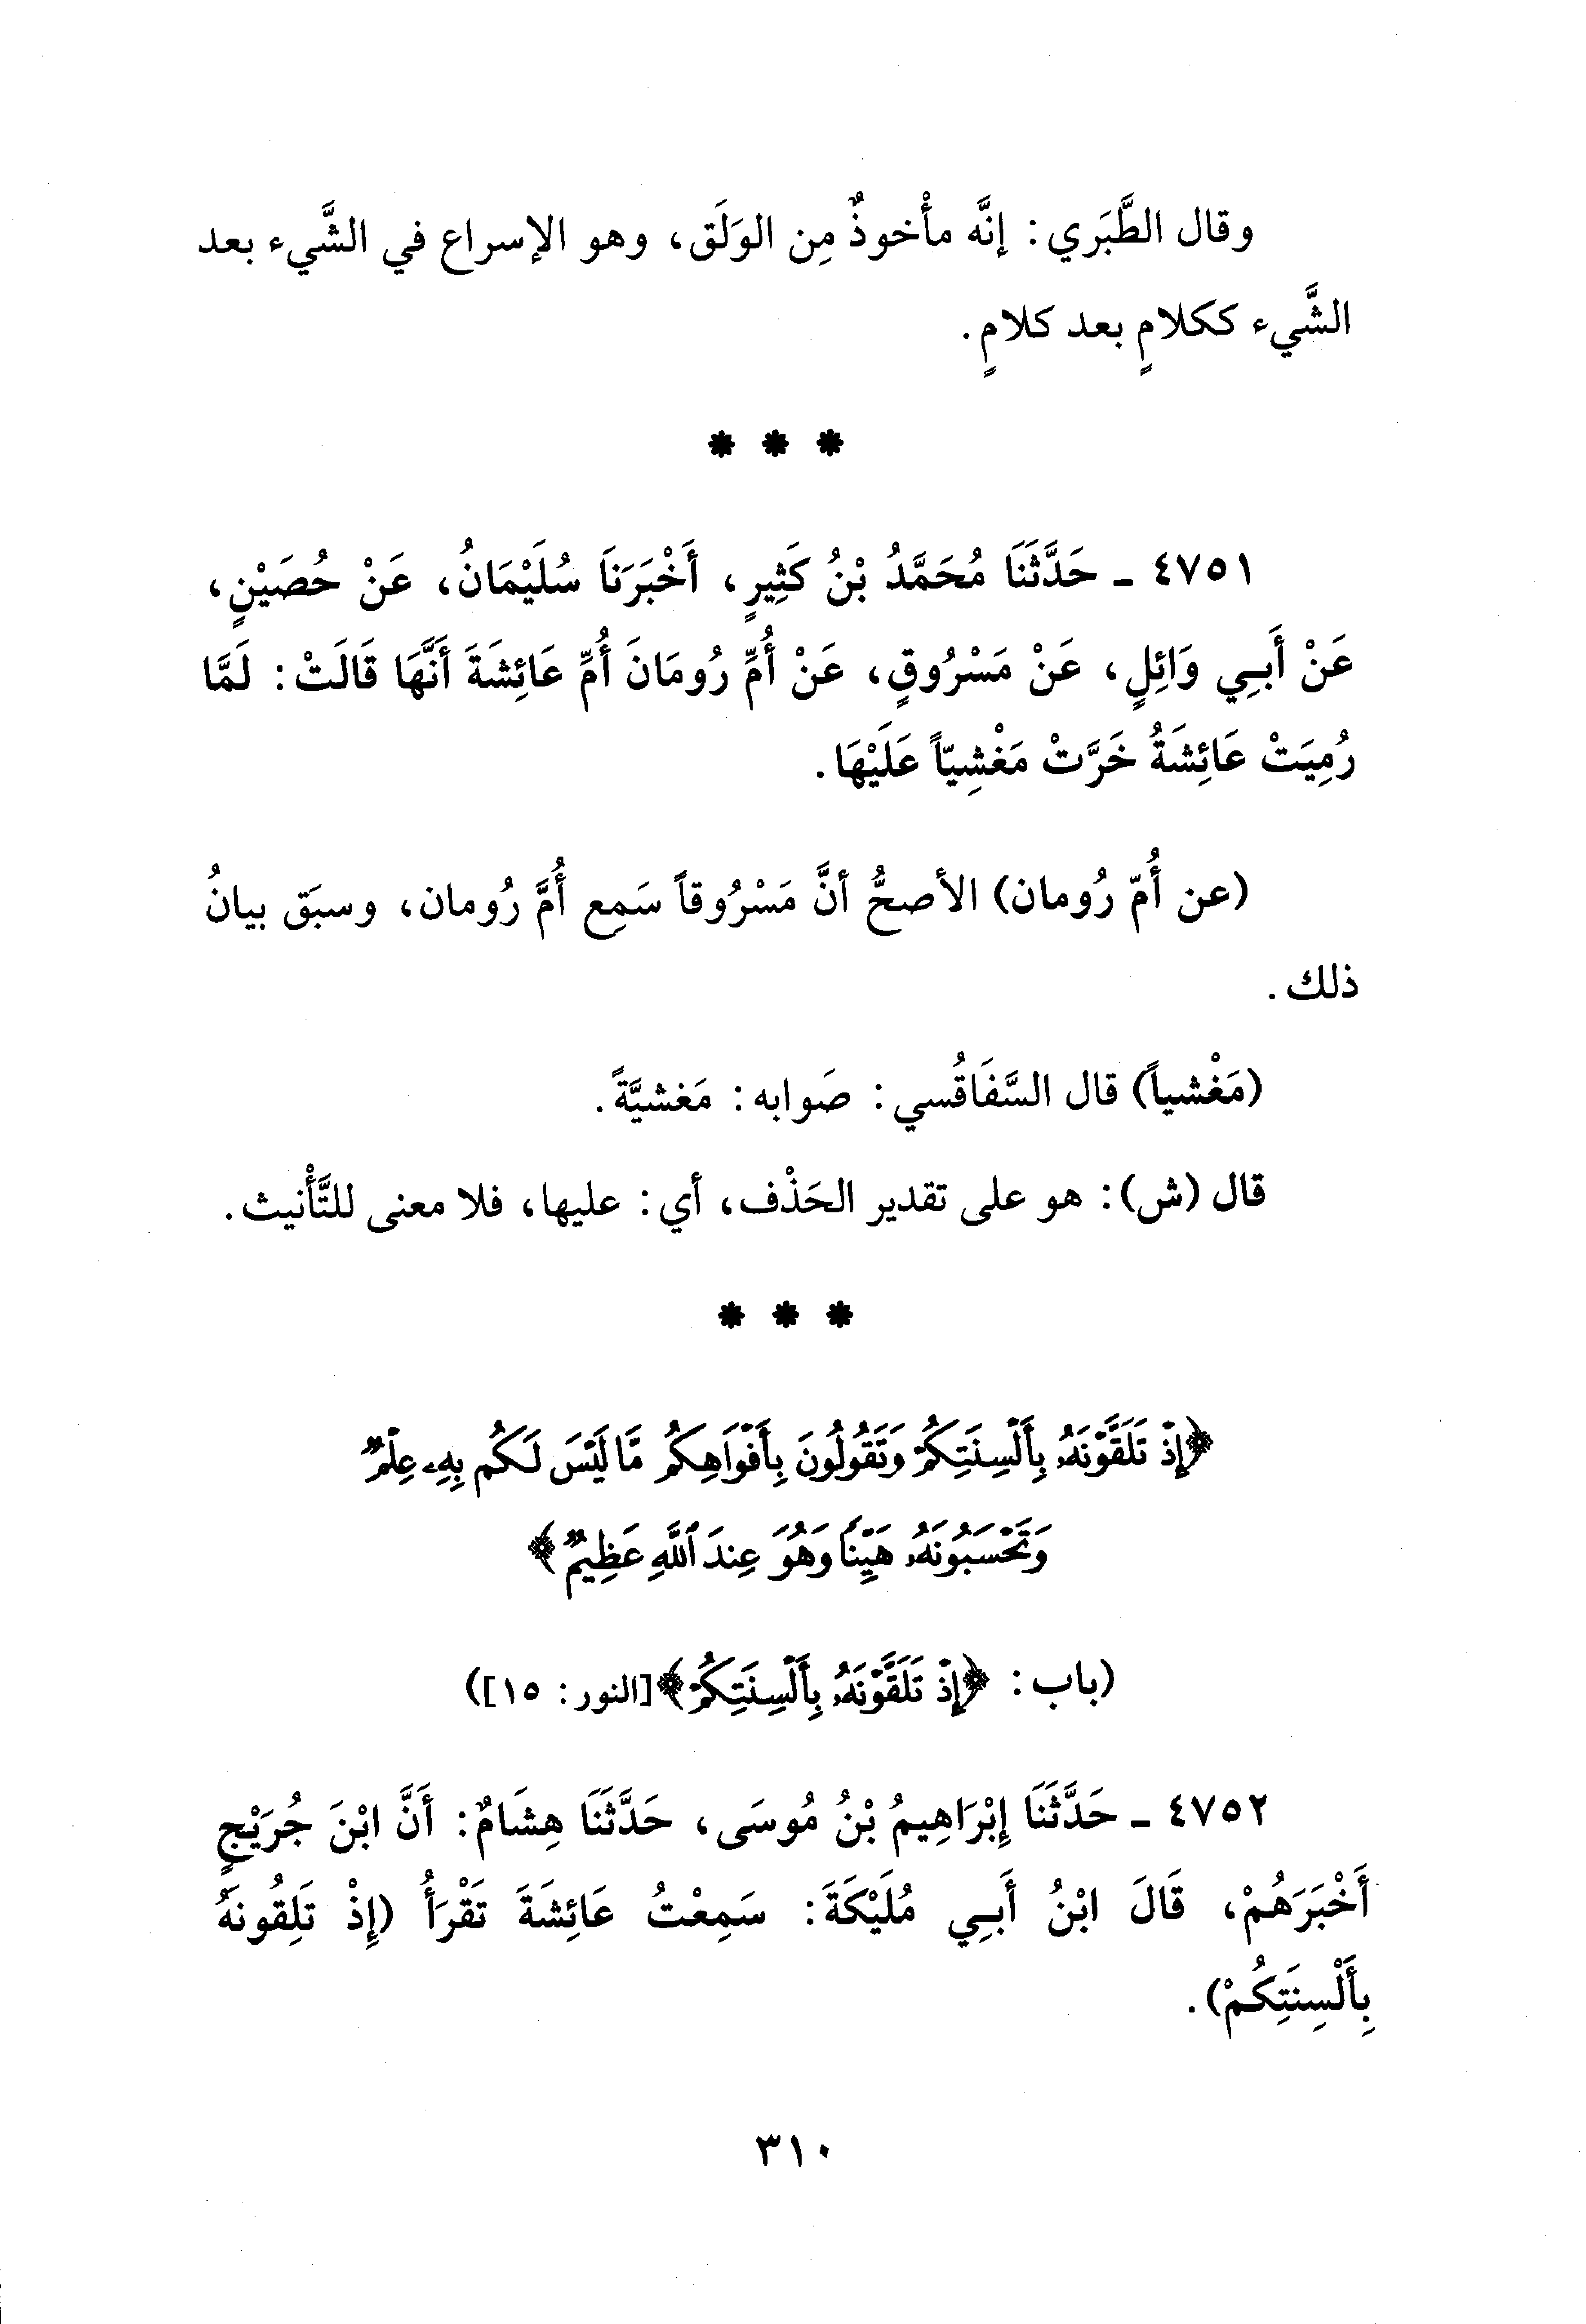 وقال الطَّبَري: إنَّه مأْخوذٌ مِن الوَلَق، وهو الإسراع في الشَّيء بعد
الشَّيء ككلامٍ بعد كلامٍ.
* * *
٤٧٥١ - حَدَّثَنَا مُحَمَّدُ بْنُ كَثِيرٍ، أَخْبَرَنَا سُلَيْمَانُ، عَنْ حُصَيْنٍ،
عَنْ أَبِي وَائِلٍ، عَنْ مَسْرُوقٍ، عَنْ أُمِّ رُومَانَ أُمِّ عَائِشَةَ أَنَّهَا قَالَتْ: لَمَّا
رُمِيَتْ عَائِشَةُ خَرَّتْ مَغْشِيّاً عَلَيْهَا.
(عن أُمّ رُومان) الأصحُّ أنَّ مَسْرُوقاً سَمِع أُمَّ رُومان، وسبَق بيانُ
ذلك.
(مَغْشياً) قال السَّفَاقُسي: صَوابه: مَغشيَّةً.
قال (ش): هو على تقدير الحَذْف، أي: عليها، فلا معنى للتَّأْنيث.
* * *
﴿إِذْ تَلَقَّوْنَهُۥ بِأَلْسِنَتِكُمْ وَتَقُولُونَ بِأَفْوَاهِكُم مَّا لَيْسَ لَكُم بِهِۦ عِلْمٌ
وَتَحْسَبُونَهُۥ هَيِّنًا وَهُوَ عِندَ ٱللَّهِ عَظِيمٌ﴾
(باب: ﴿إِذْ تَلَقَّوْنَهُۥ بِأَلْسِنَتِكُمْ﴾ [النور: ١٥])
٤٧٥٢ - حَدَّثَنَا إِبْرَاهِيمُ بْنُ مُوسَى، حَدَّثَنَا هِشَامٌ: أَنَّ ابْنَ جُرَيْجٍ
أَخْبَرَهُمْ، قَالَ ابْنُ أَبِي مُلَيْكَةَ: سَمِعْتُ عَائِشَةَ تَقْرَأُ (إِذْ تَلِقُونَهُ
بِأَلْسِنَتِكُمْ).
٣١٠